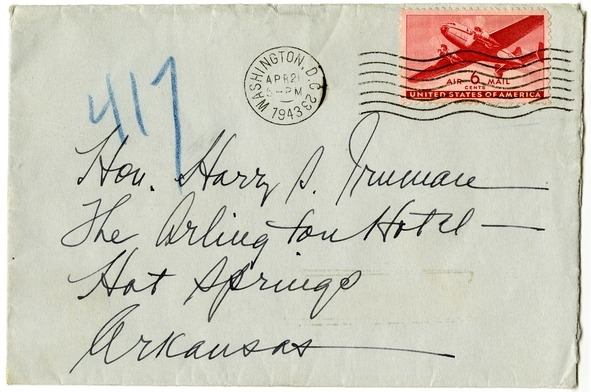 WASHINGTON, D.C. 23
APR 21
PM
1943
AIR 6 MAIL
CENTS
UNITED STATES OF AMERICA
417
Hon. Harry S. Truman
The Arlington Hotel
Hot Springs
Arkansas